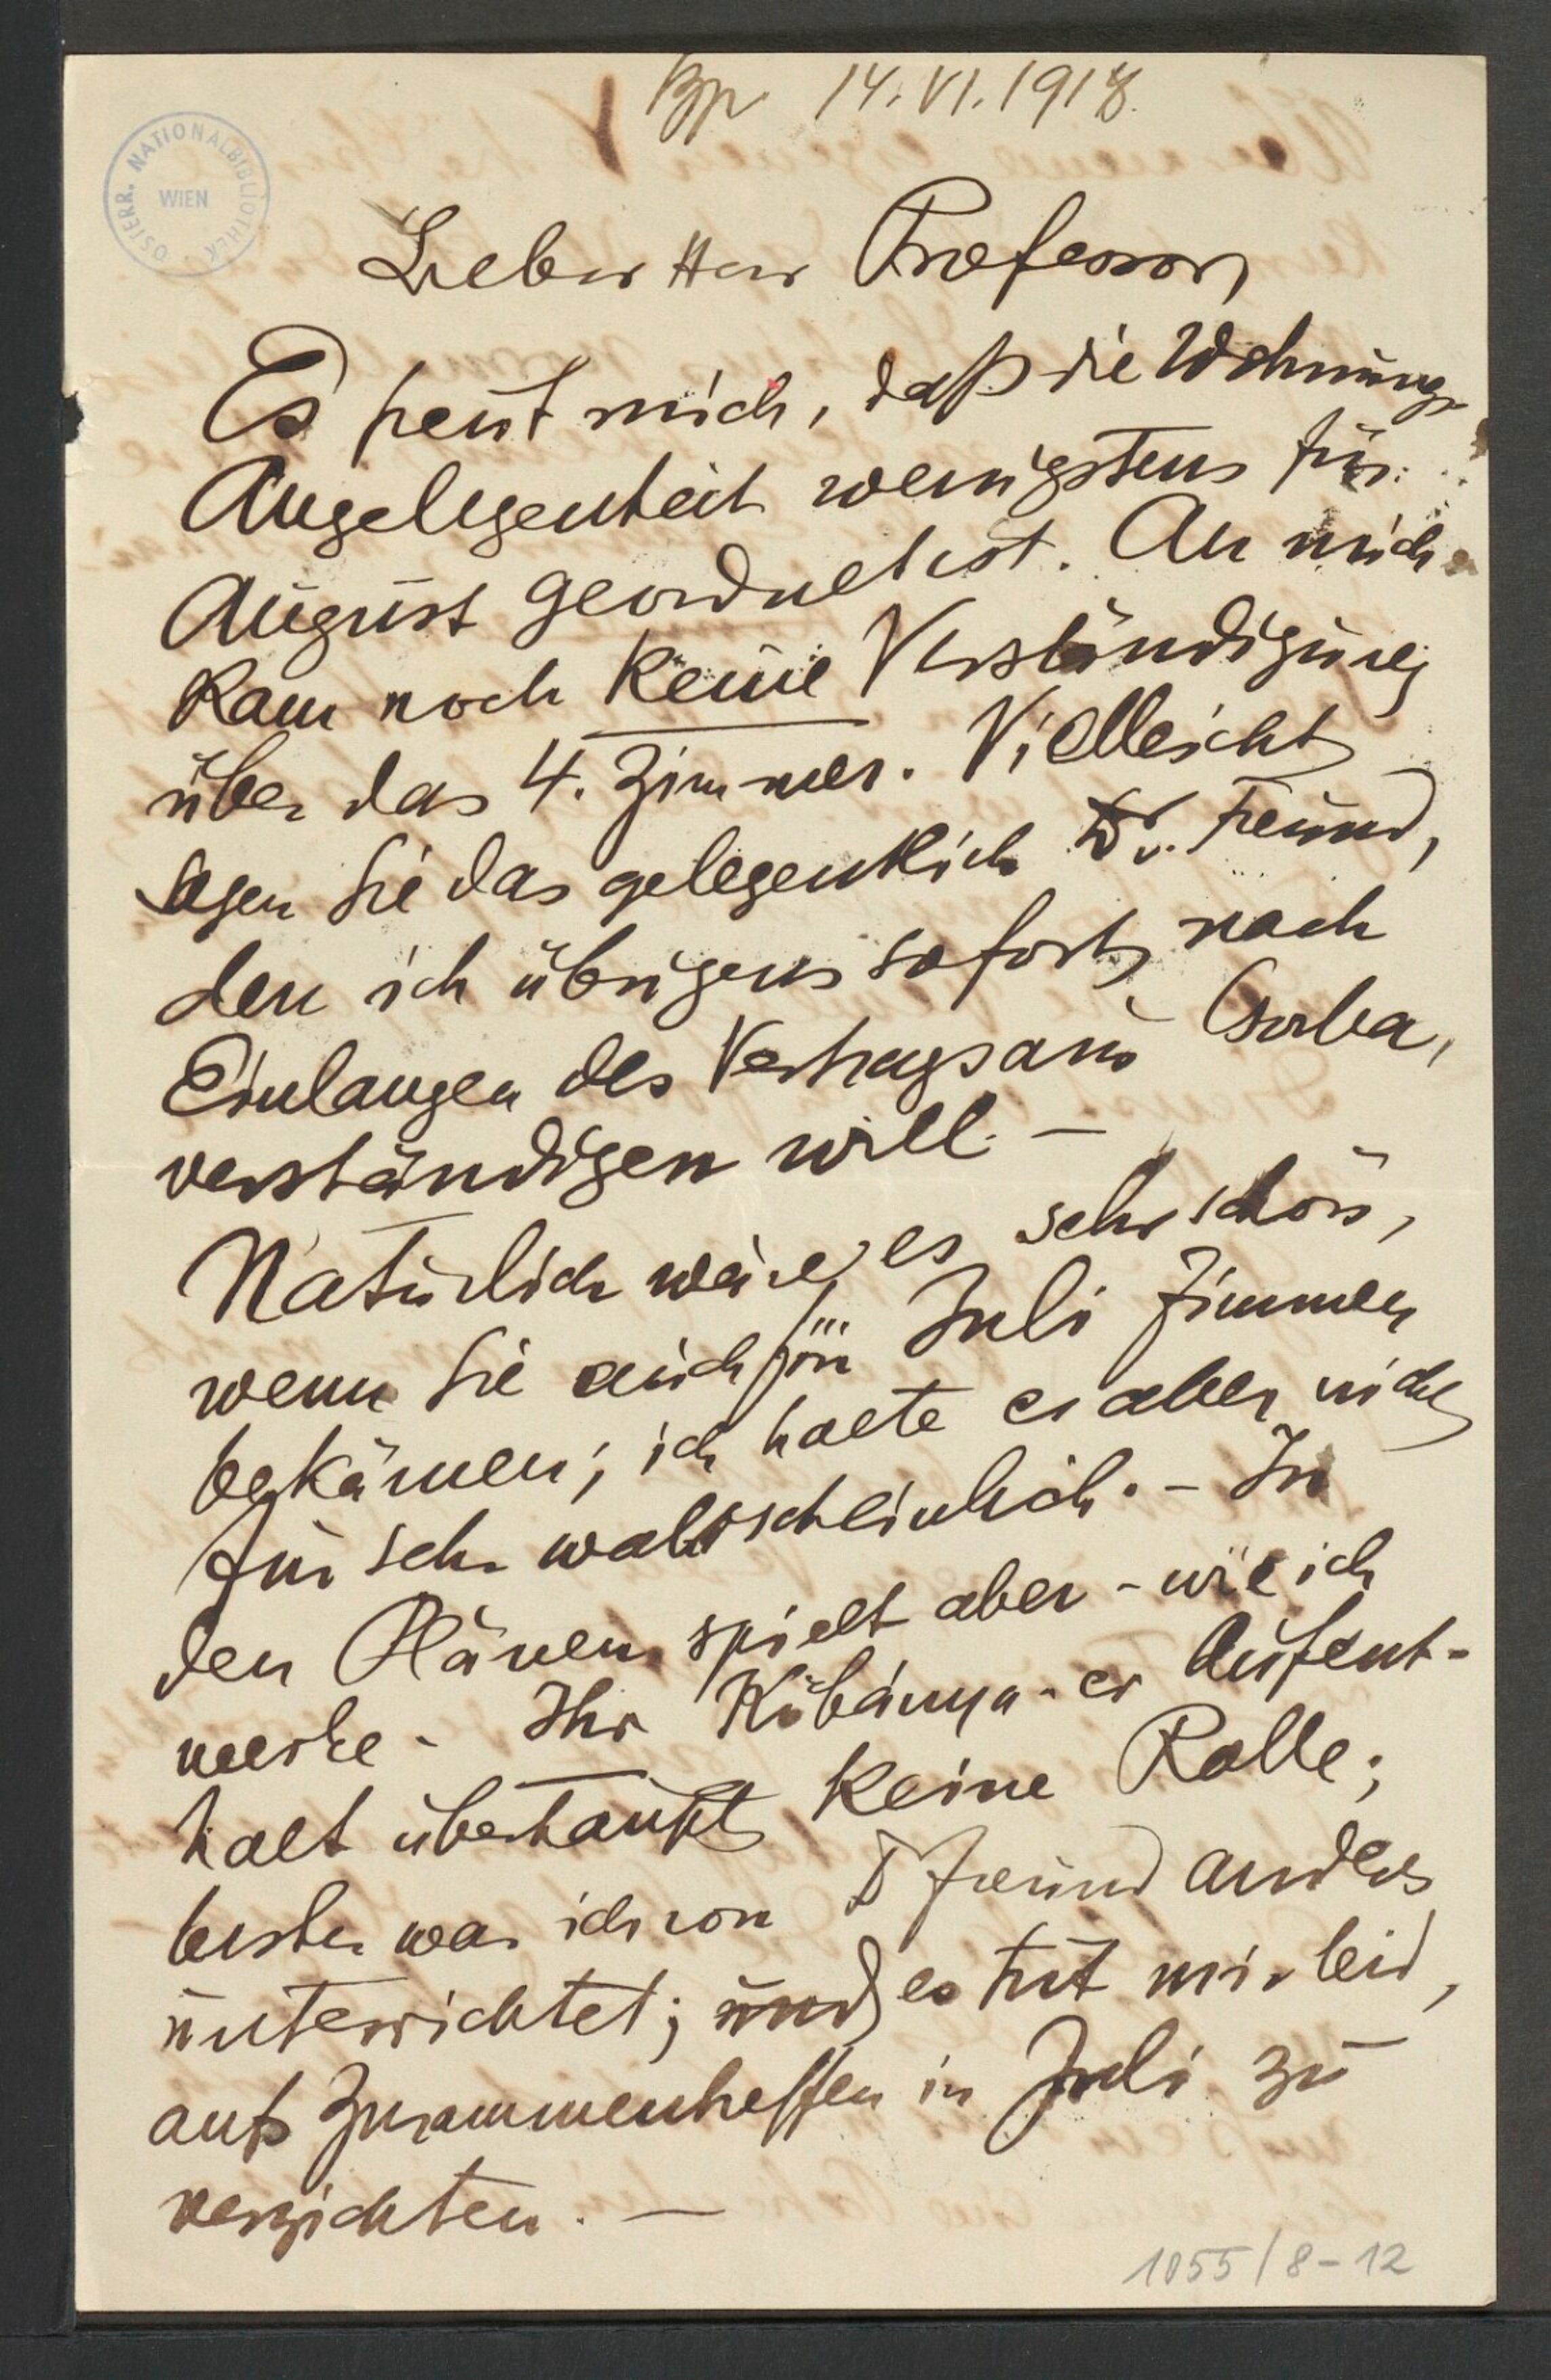 Bp 14.VI.1918.
ÖSTERR. NATIONALBIBLIOTHEK
WIEN
Lieber Herr Professor,
Es freut mich, daß die Wohnungs-
Angelegenheit wenigstens für
August geordnet ist. An mich
kam noch keine Verständigung
über das 4. Zimmer. Vielleicht
sagen Sie das gelegentlich Dr. Freund,
den ich übrigens sofort nach
Einlangen des Vertrags aus Csorba,
verständigen will. —
Natürlich wäre es sehr schön,
wenn Sie auch für Juli Zimmer
bekämen; ich halte es aber nicht
für sehr wahrscheinlich. – In
den Plänen spielt aber – wie ich
merke – Ihr Kőbánya-er Aufent-
halt überhaupt keine Rolle;
bisher war ich von Dr Freund anders
unterrichtet; und es tut mir leid,
aufs Zusammentreffen in Juli zu
verzichten. —
1055/8-12